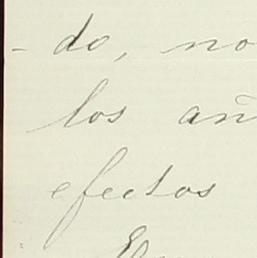 - do, no
los añ
efectos